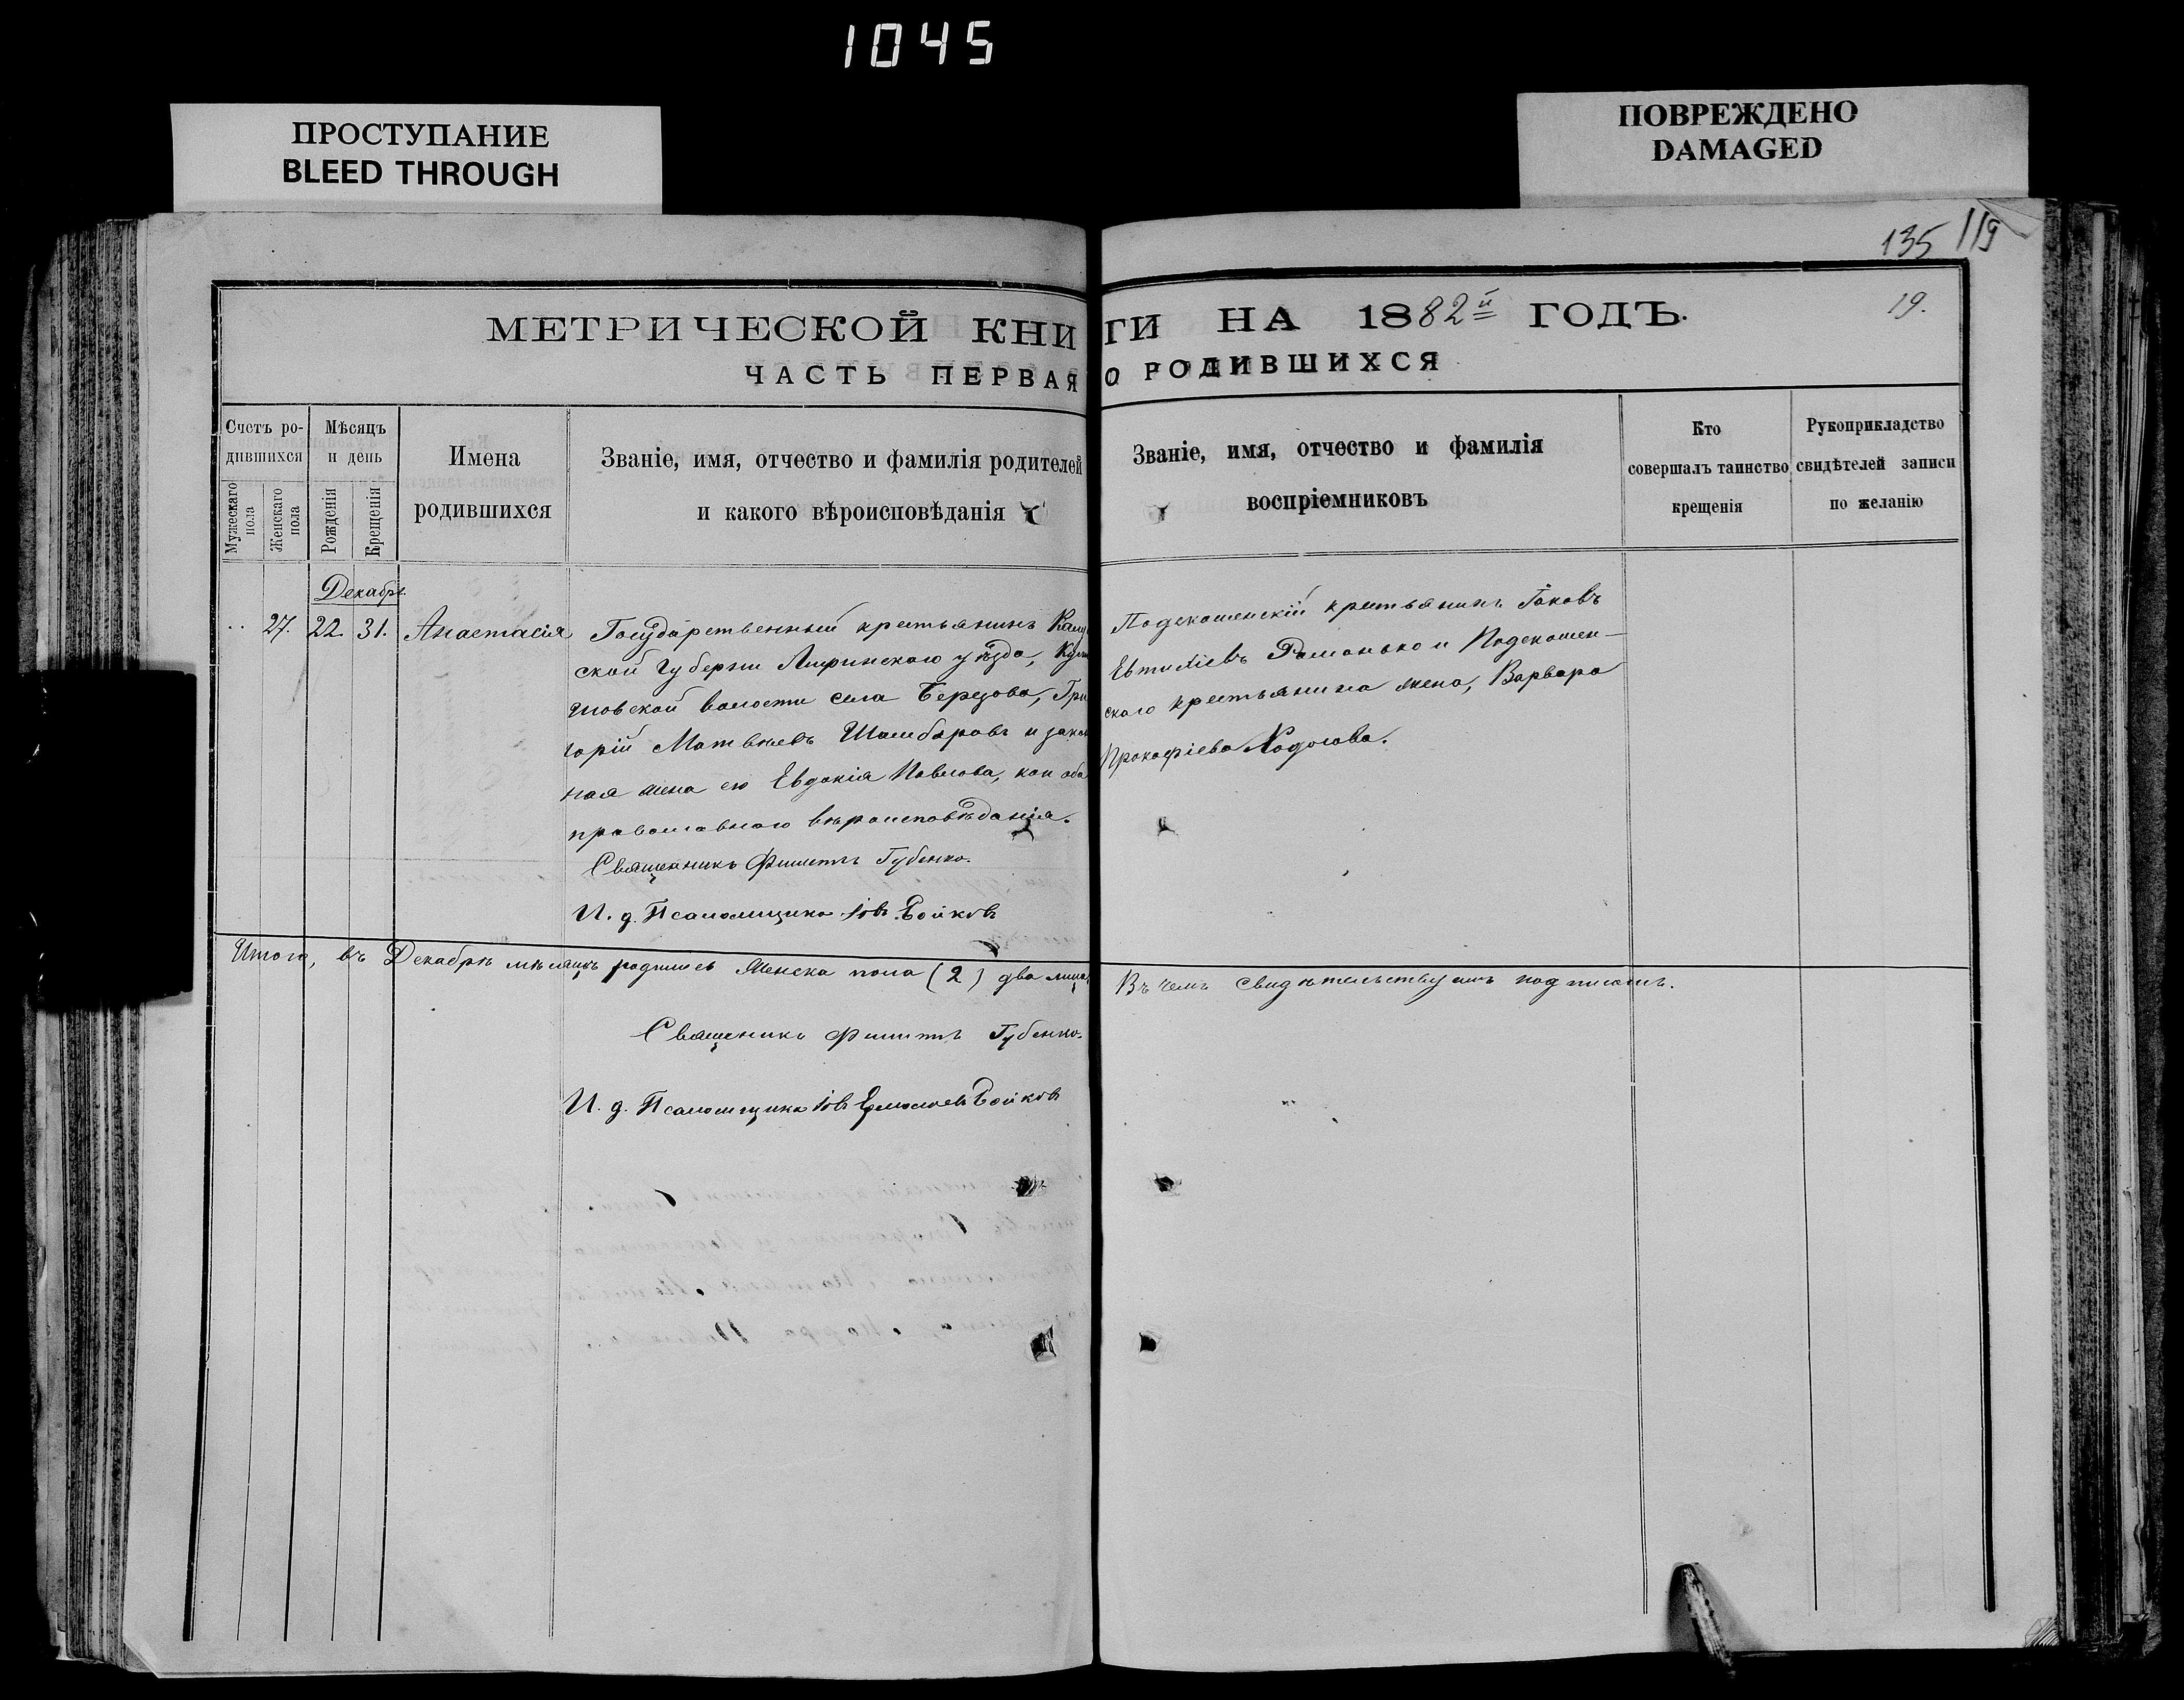 1045
ПРОСТУПАНИЕ
BLEED THROUGH
ПОВРЕЖДЕНО
DAMAGED
135 119
19.
МЕТРИЧЕСКОЙ КНИГИ НА 1882й ГОДЪ.
ЧАСТЬ ПЕРВАЯ О РОДИВШИХСЯ
Счетъ ро-
дившихся
Мужескаго пола
Женскаго пола
Мѣсяцъ
и день
Рожденія
Крещенія
Имена
родившихся
Званіе, имя, отчество и фамилія родителей
и какого вѣроисповѣданія
Званіе, имя, отчество и фамилія
воспріемниковъ
Кто
совершалъ таинство
крещенія
Рукоприкладство
свидѣтелей записи
по желанію
Декабрь
27. 22. 31. Анастасія
Государственный крестьянинъ
ской Губерніи уѣзда,
шовской волости села Березова, Гри
горій Матвѣевъ и закон
ная жена его Евдокія Павлова, кои оба
православного вѣроисповѣданія.
Священникъ Филиппъ Губенко.
И. д. Псаломщика Іовъ Бойковъ
Подекошенскій крестьянинъ Іаковъ
Евтихіевъ Романько и Подекошен-
ского крестьянина жена, Варвара
Прокофіева
Итого, въ Декабрѣ мѣсяцѣ родилось Женска пола (2) два лица
Въ чемъ свидѣтельствуемъ подписомъ.
Священикъ Филиппъ Губенко.
И. д. Псаломщика Іовъ Бойковъ